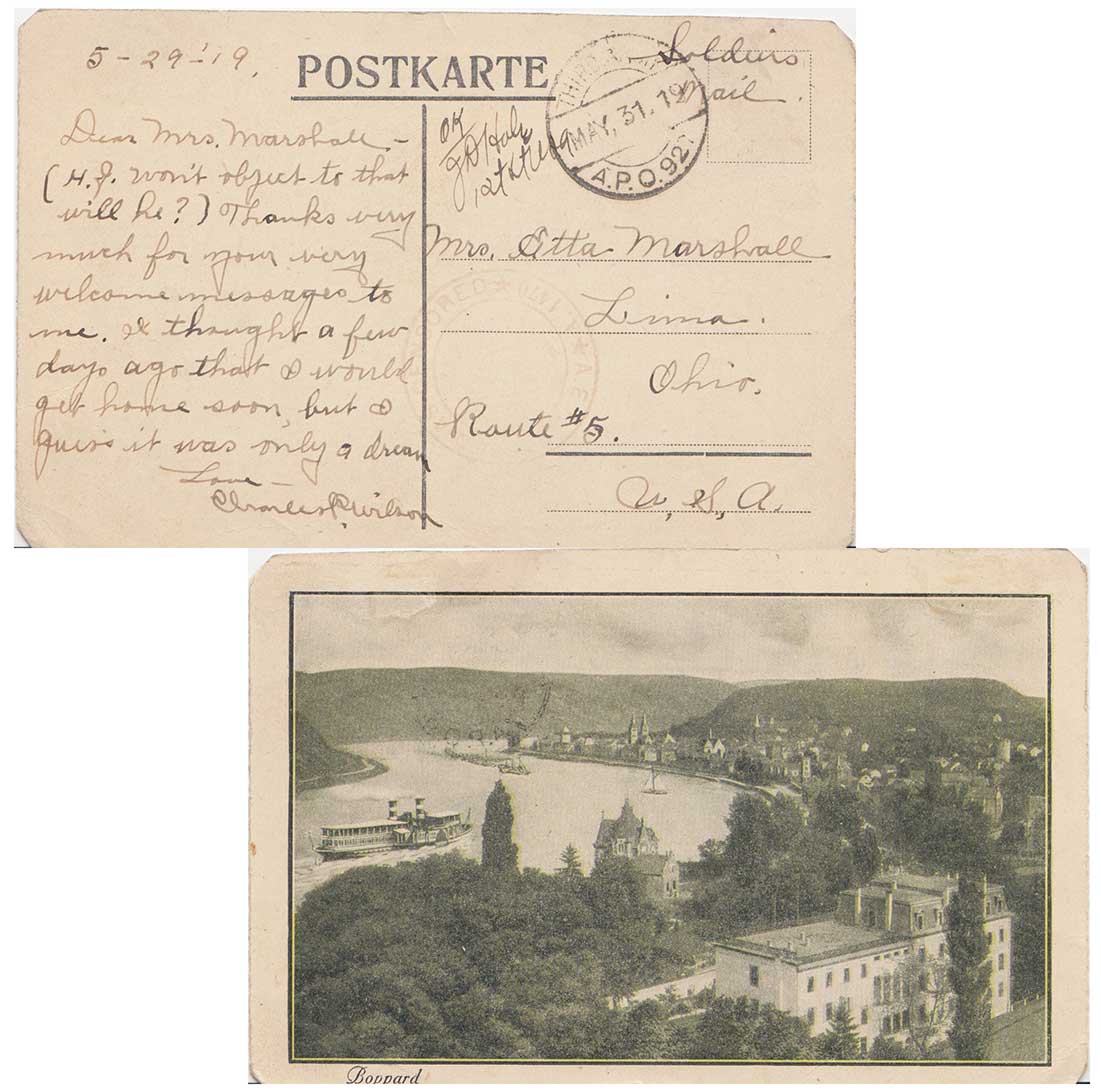 5-29-'19.
POSTKARTE
Soldiers
Mail.
Dear Mrs. Marshall,-
(H.J. won't object to that
will he?) Thanks very
much for your very
welcome messages to
me. I thought a few
days ago that I would
get home soon, but I
guess it was only a dream
Love -
Charles P. Wilson
OK
1st Lt
MAY, 31. 19
A.P.O. 927
Mrs. Etta Marshall
Lima.
Ohio.
Route #5.
U.S.A.
A.E.
Boppard